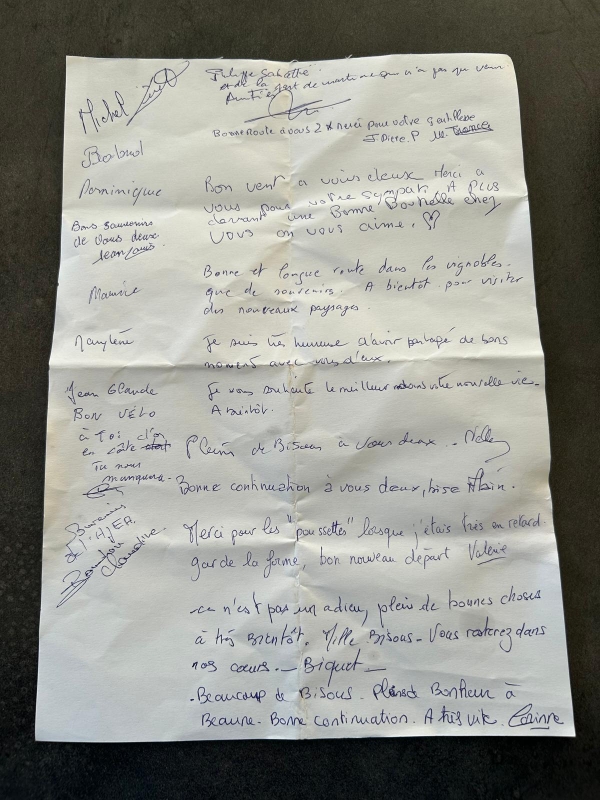 Michel
Philippe
et de la part de martine qui n'a pas pu venir
Bonne Route à vous 2 * merci pour votre gentillesse
J Pierre. P M. Frances
Dominique
Bon vent a vous deux Merci a
vous pour votre sympati. A PLUS
devant une Bonne Bouteille chez
vous on vous aime. ♡
Bons souvenirs
de vous deux
Jean Louis
Maurice
Bonne et longue route dans les vignobles.
que de souvenirs. A bientot pour visiter
des nouveaux paysages.
Marylène
Je suis très heureuse d'avoir partagé de bons
moment avec vous deux.
Jean Claude
Je vous souhaite le meilleur dans votre nouvelle vie.
A bientôt.
BON VÉLO
à Toi
en côte
Tu nous
manquera
Pleins de Bisous à vous deux.
Bonne continuation à vous deux, bise Alain.
Souvenirs
de l'AJEA.
Claudine
Merci pour les "poussettes" lorsque j'étais très en retard.
garde la forme, bon nouveau départ Valérie
- ce n'est pas un adieu, plein de bonnes choses
à très Bientôt. Mille Bisous - Vous resterez dans
nos cœurs. — Biquet —
- Beaucoup de Bisous. Pleins de Bonheur à
Beaune. Bonne continuation. A très vite. Corinne